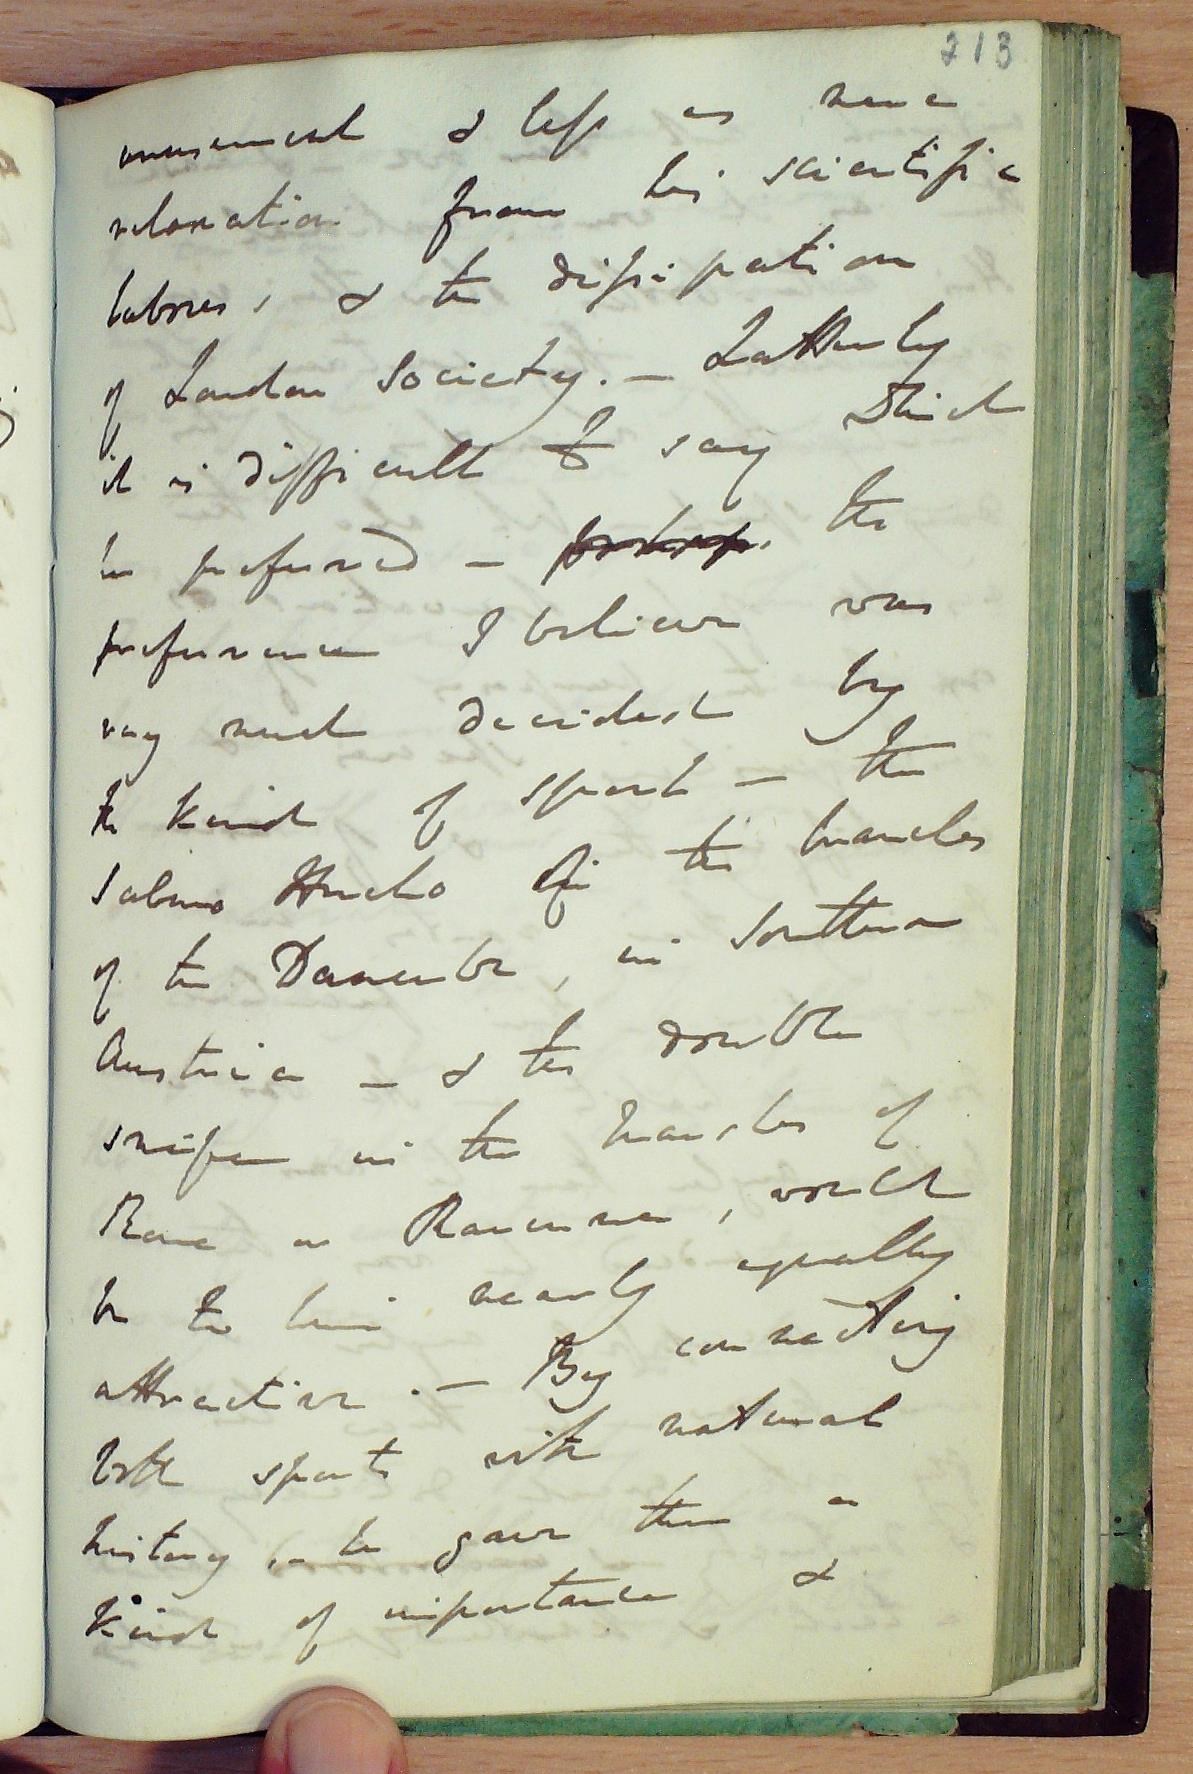 213
amusement & less as mere
relaxation from his scientific
labors, & the dissipation
of London Society. – Latterly
it is difficult to say which
he preferred – perhaps. the
preference I believe was
very much decided by
the kind of sport – the
Salmo Hucho in the branches
of the Danube, in Southern
Austria – & the double
snipe in the marshes of
Rome or Ravenna, would
be to him nearly equally
attractive. – By connecting
both sports with natural
history, – he gave them a
kind of importance &